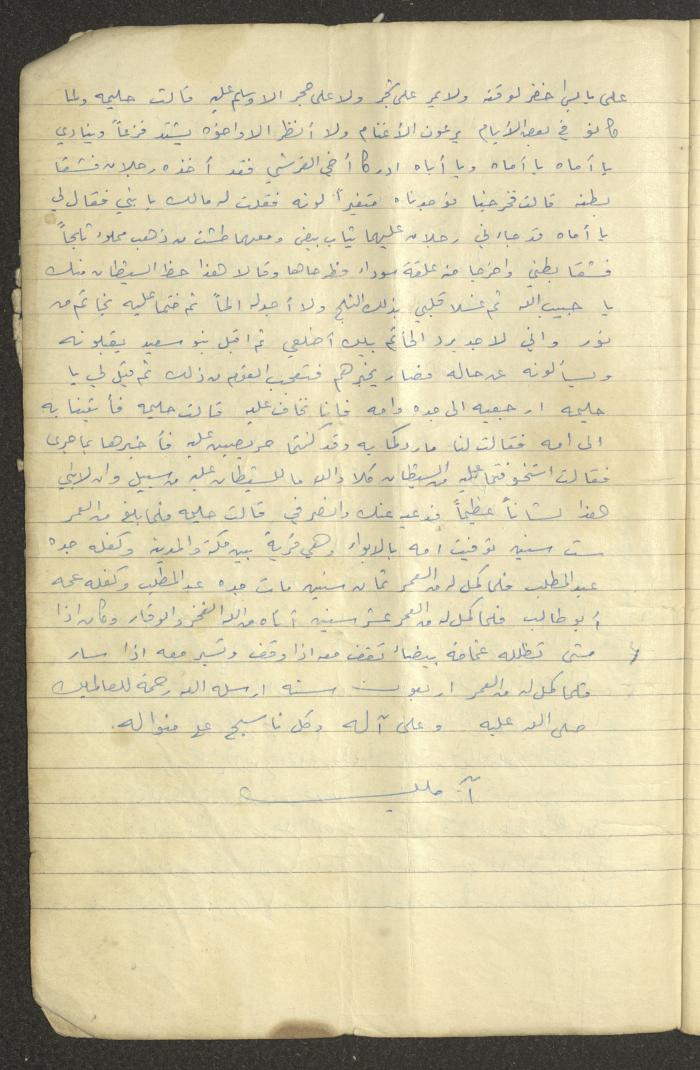 على يابس اخضر لوقته ولا يمر على شجر ولا على حجر الا وسلم عليه قالت حليمه ولما
كانو في بعض الأيام يرعون الأغنام ولا أنظر الا واخوه يشتد فزعاً وينادي
يا أماه يا أماه ويا أباه ادركا أخي القرشي فقد أخذه رجلان فشقا
بطنه قالت فخرجنا فوجدناه متغيراً لونه فقلت له مالك يا بني فقال لي
يا أماه قد جاءني رجلان عليهما ثياب بيض ومعهما طشت من ذهب مملوء ثلجاً
فشقا بطني واخرجا منه علقة سوداء فطرحاها وقالا هذا حظ الشيطان منك
يا حبيب الله ثم غسلا قلبي بذلك الثلج ولا أجد له الماً ثم ختما عليه بخاتم من
نور واني لا جد برد الخاتم بين أضلعي ثم اقبل بنو سعيد يقبلونه
ويسألونه عن حاله فصار يخبرهم فتعجب القوم من ذلك ثم قيل لي يا
حليمه ارجعيه الى جده وامه فانا نخاف عليه قالت حليمه فأتينا به
الى امه فقالت لنا ما ردكما به وقد كنتما حريصين عليه فأخبرها بما جرى
فقالت اتخوفتما عليه من الشيطان كلا والله ما للشيطان عليه من سبيل وان لابني
هذا لشاناً عظيماً فدعيه عنك وانصرفي قالت حليمه فلما بلغ من العمر
ست سنين توفيت امه بالابواء وهي قرية بين مكة والمدينه وكفله جده
عبدالمطلب فلما كمل له من العمر ثمان سنين مات جده عبدالمطلب وكفله عمه
أبو طالب فلما كمل له من العمر عشر سنين أتاه من الله الفخر والوقار وكان اذا
مشى تظلله غمامة بيضاء تقف معه اذا وقف وتسير معه اذا سار
فلما كمل له من العمر اربعون سنه ارسله الله رحمة للعالمين
صلى الله عليه وعلى آله وكل ناسج على منواله.
آمين